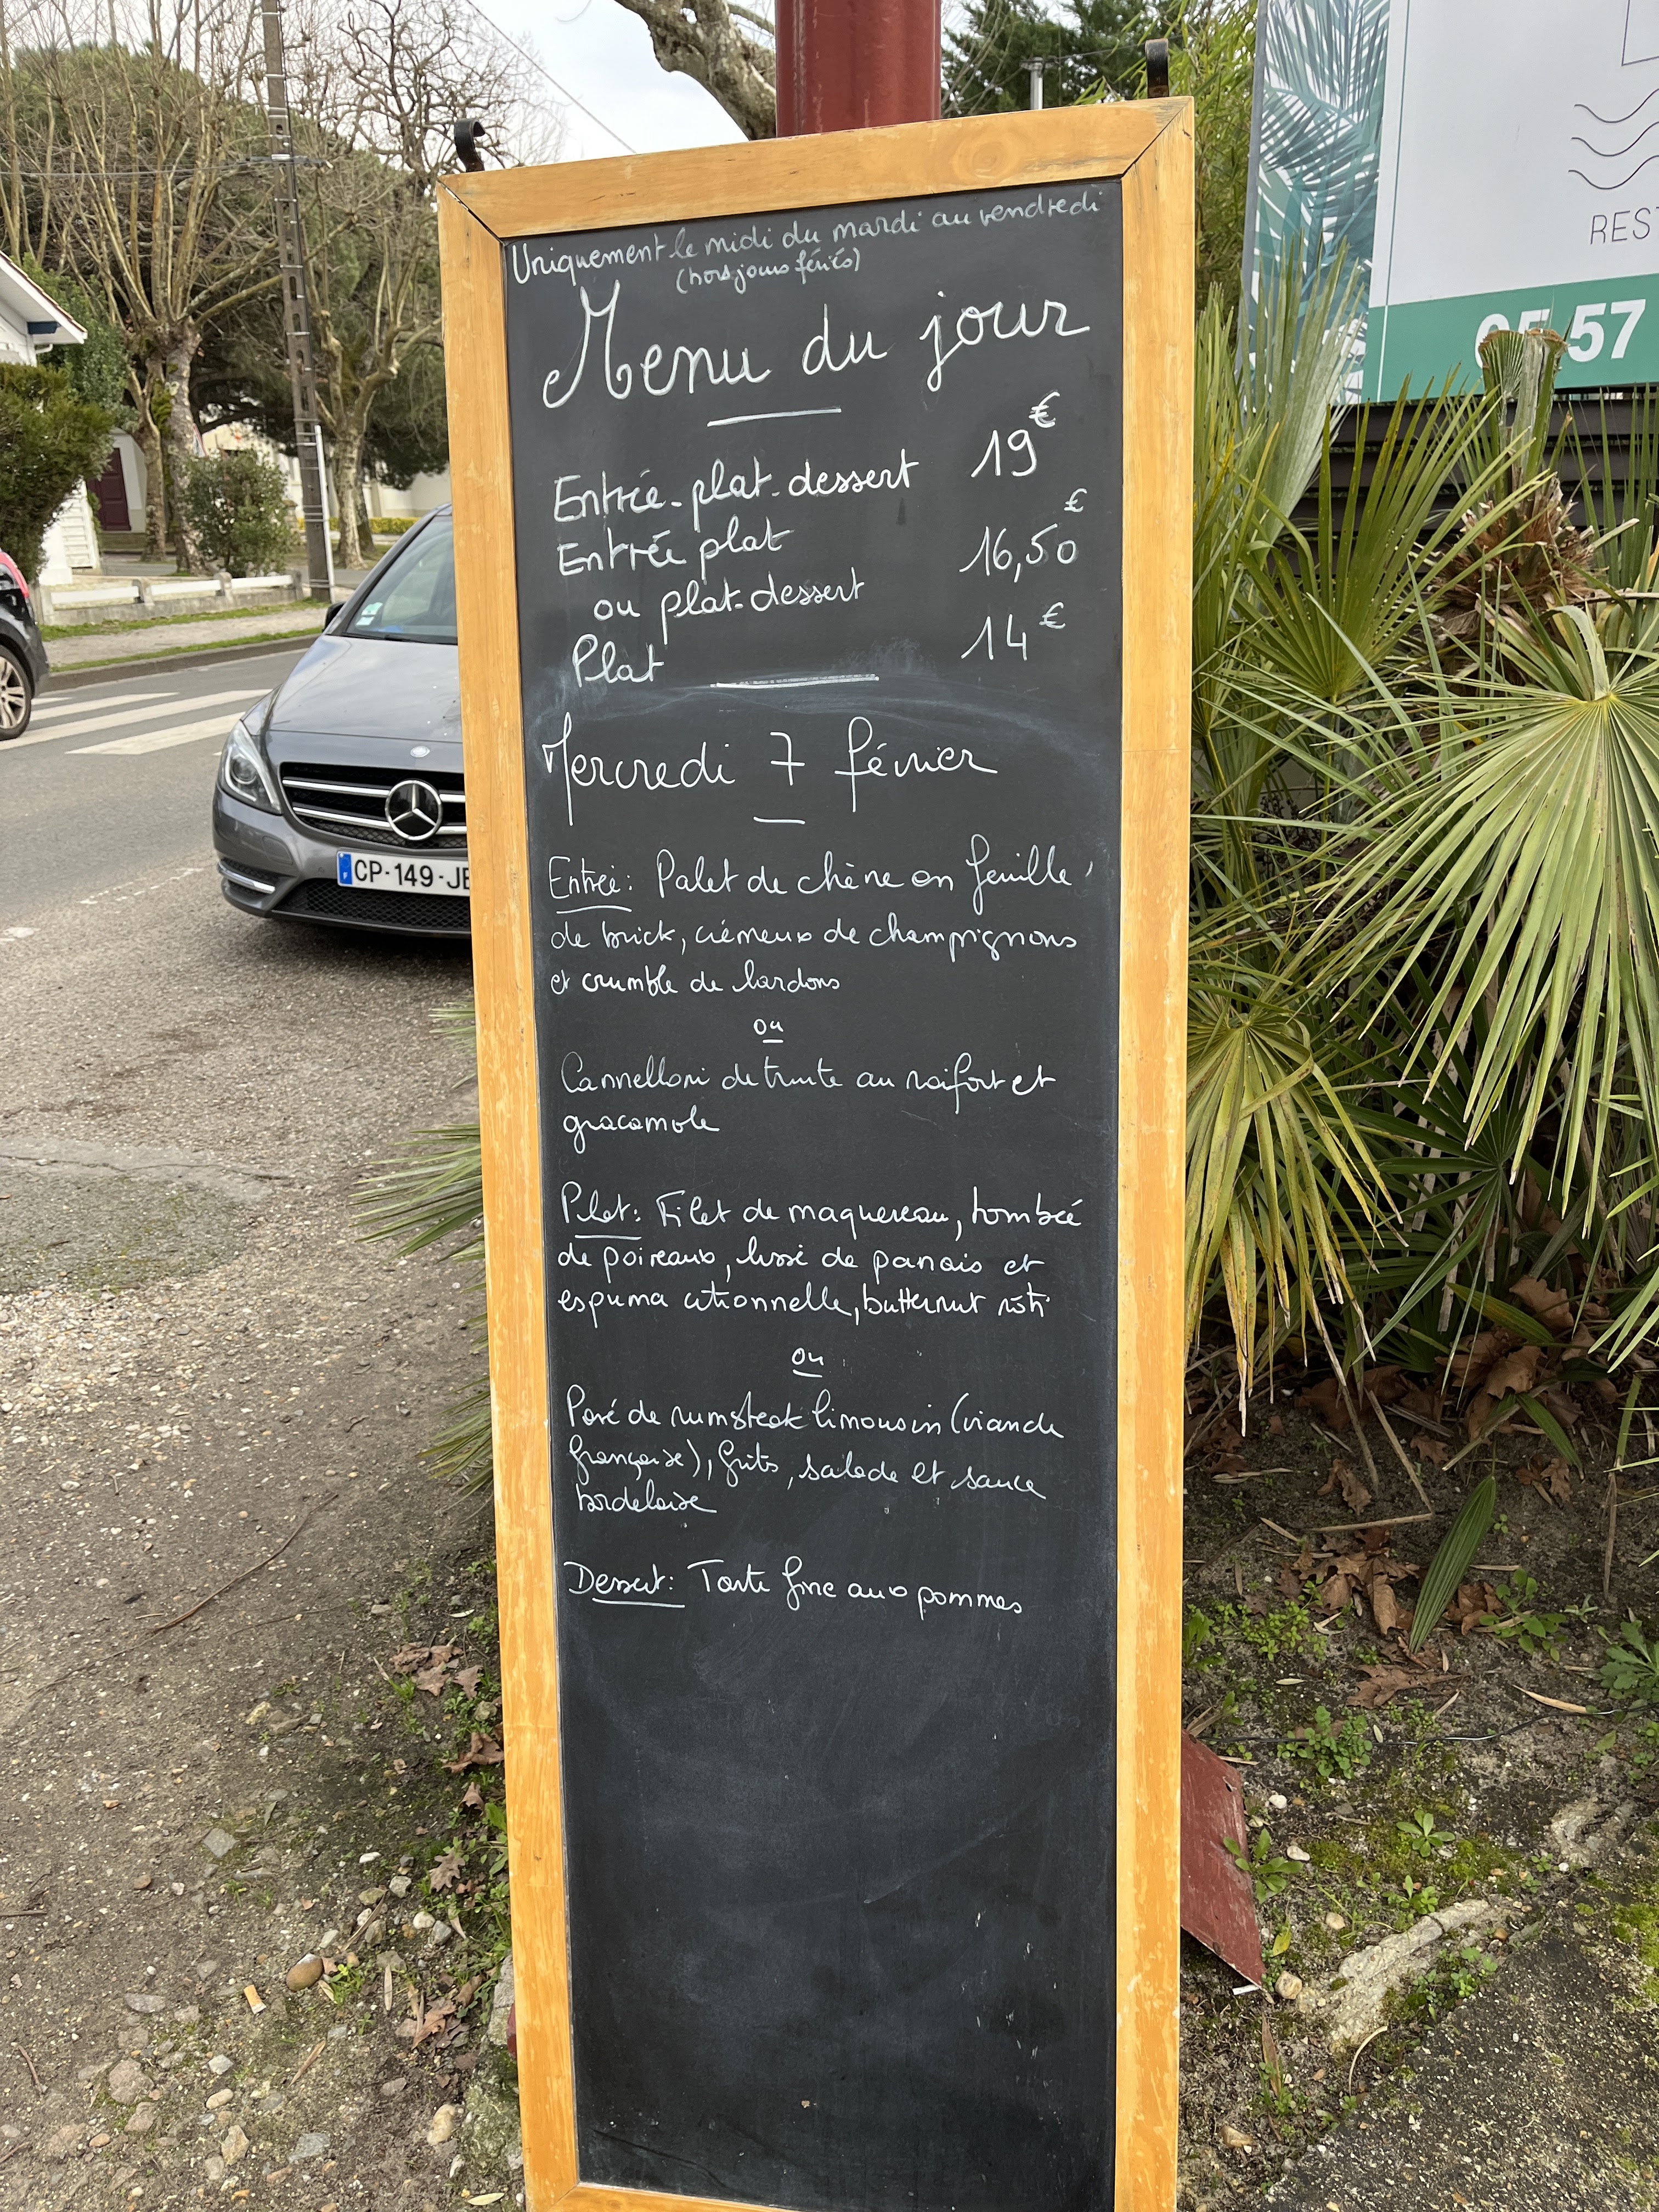 Uniquement le midi du mardi au vendredi
(hors jours fériés)
Menu du jour
Entrée-plat-dessert 19€
Entrée plat
ou plat-dessert 16,50€
Plat 14€
Mercredi 7 février
Entrée: Palet de chèvre en feuille
de brick, crémeux de champignons
et crumble de lardons
ou
Cannelloni de truite au raifort et
guacamole
Plat: Filet de maquereau, tombée
de poireaux, lissé de panais et
espuma citronnelle, butternut rôti
ou
Pavé de rumsteak limousin (viande
française), frites, salade et sauce
bordelaise
Dessert: Tarte fine aux pommes
CP-149-JE
REST
05 57